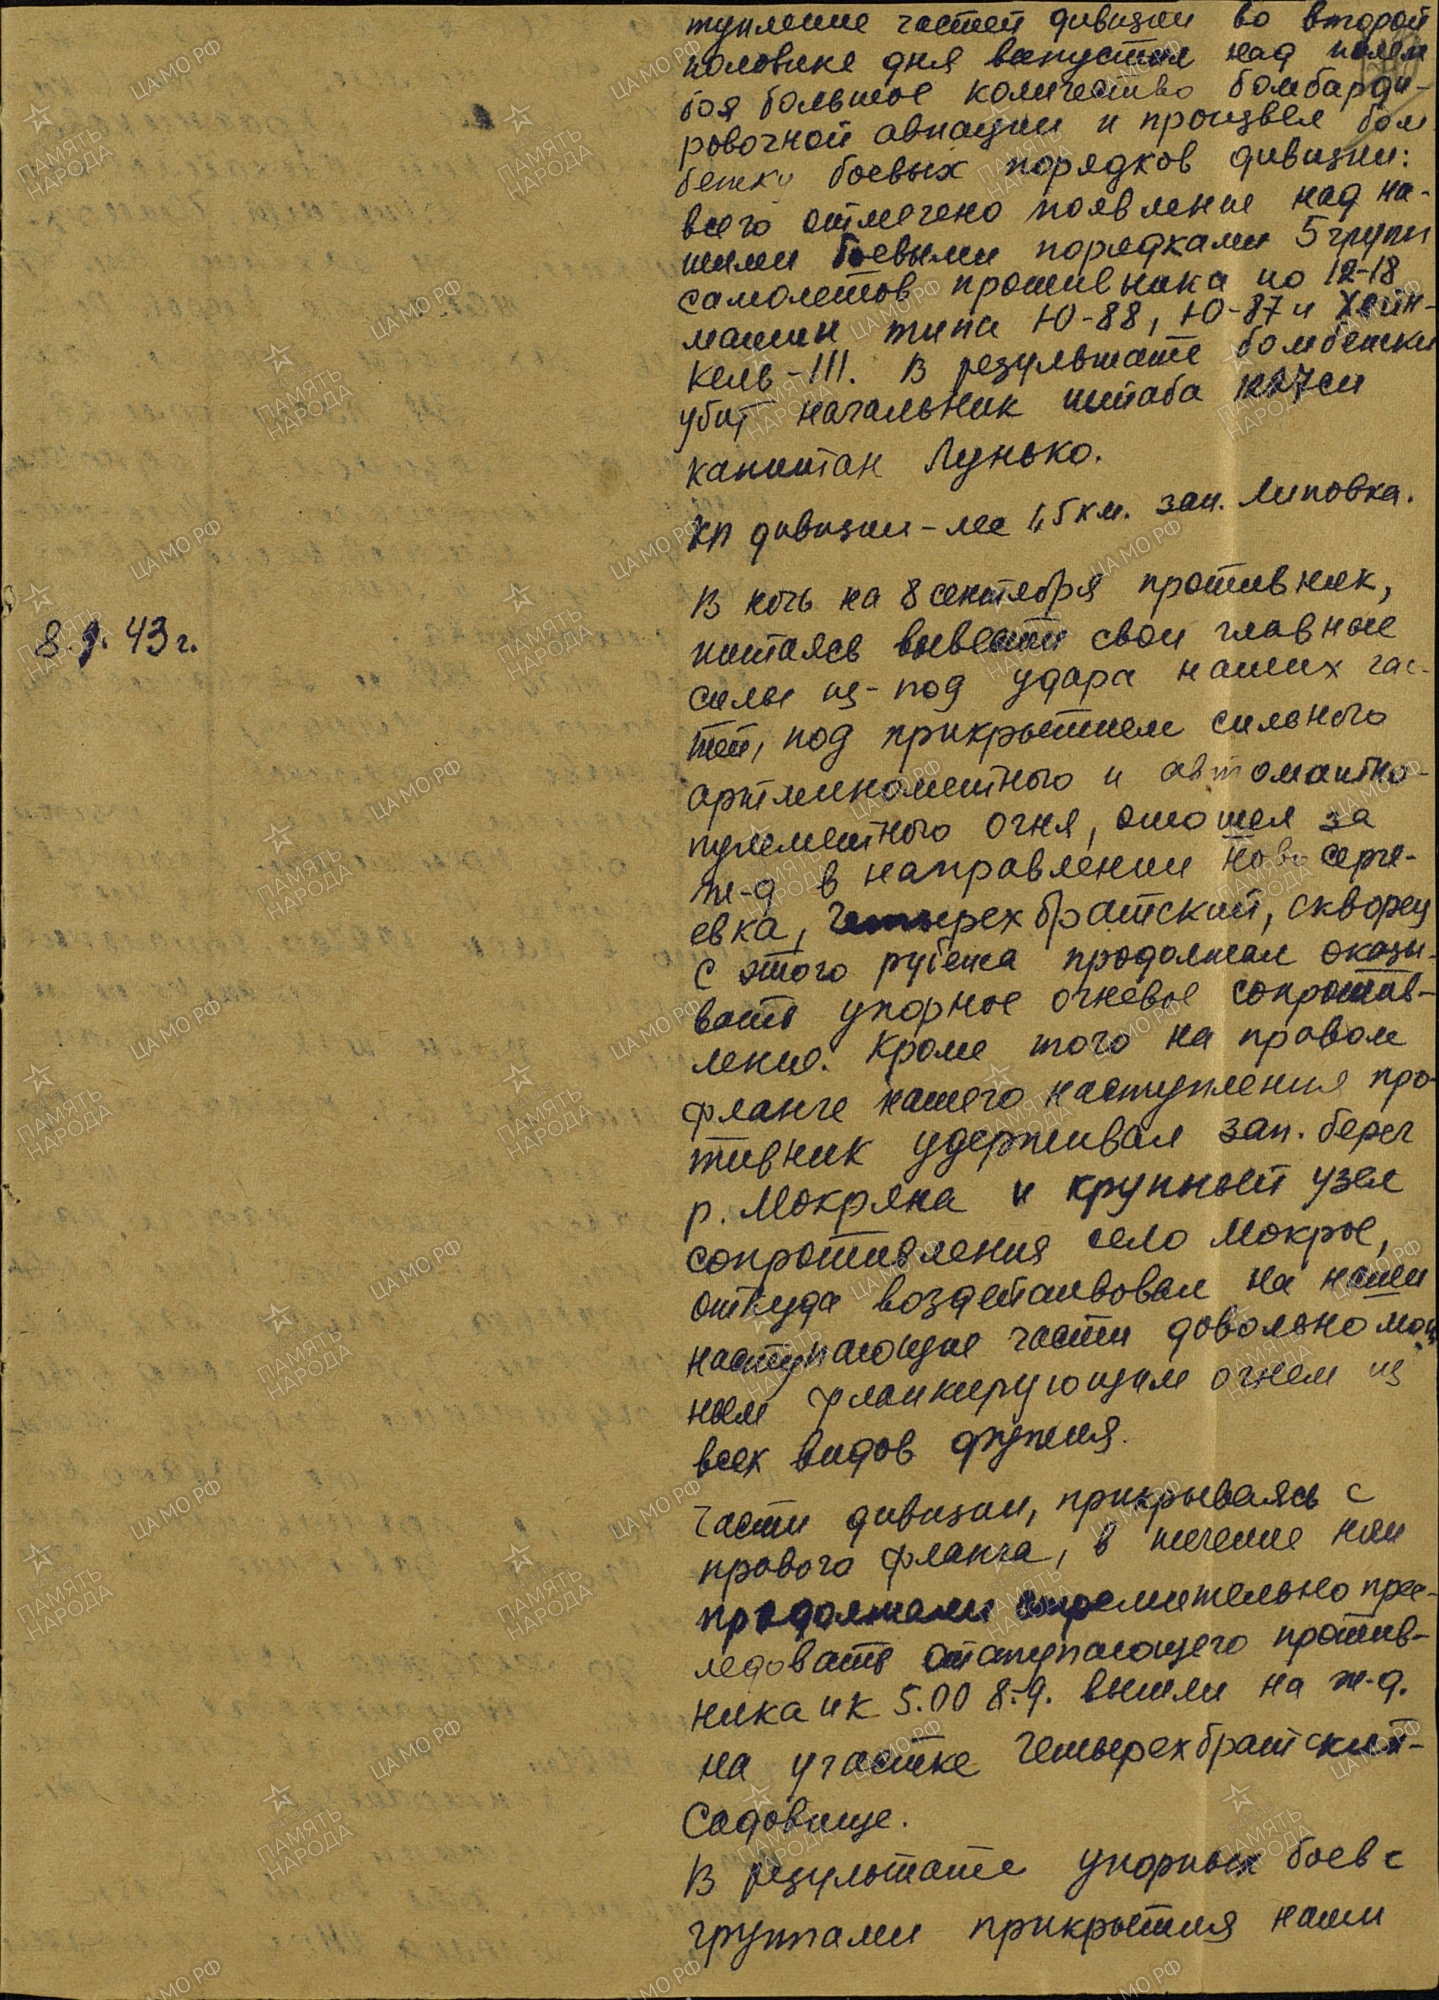 тупление частей дивизии во второй
половине дня выпустил над полем
боя большое количество бомбарди-
ровочной авиации и произвел бом
бежку боевых порядков дивизии:
всего отмечено появление над на-
шими боевыми порядками 5 групп
самолетов противника по 12-18
машин типа Ю-88, Ю-87 и Хейн-
кель-111. В результате бомбежки
убит начальник штаба сп
капитан Лунько.
КП дивизии - лес 1,5 км. зап. Липовка.
8.9.43 г.
В ночь на 8 сентября противник,
пытаясь вывести свои главные
силы из-под удара наших час-
тей, под прикрытием сильного
артминометного и автоматно-
пулеметного огня, отошел за
ж-д в направлении Ново Серге-
евка, Четырехбратский, Скворец
с этого рубежа продолжал оказы-
вать упорное огневое сопротив-
ление. Кроме того на правом
фланге нашего наступления про
тивник удерживал зап. берег
р. Мокряна и крупный узел
сопротивления село Мокрое,
откуда воздействовал на наши
наступающие части довольно мощ
ным фланкирующим огнем из
всех видов оружия.
Части дивизии, прикрываясь с
правого фланга, в течение ночи
продолжали стремительно прес-
ледовать отступающего против-
ника и к 5.00 8.9. вышли на ж-д.
на участке Четырехбратский-
Садовище.
В результате упорных боев с
группами прикрытия наши
ЦА МО РФ
ПАМЯТЬ
НАРОДА